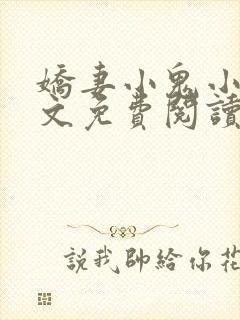 嬌妻小鬼小
文免費閱讀
說我帥給你花